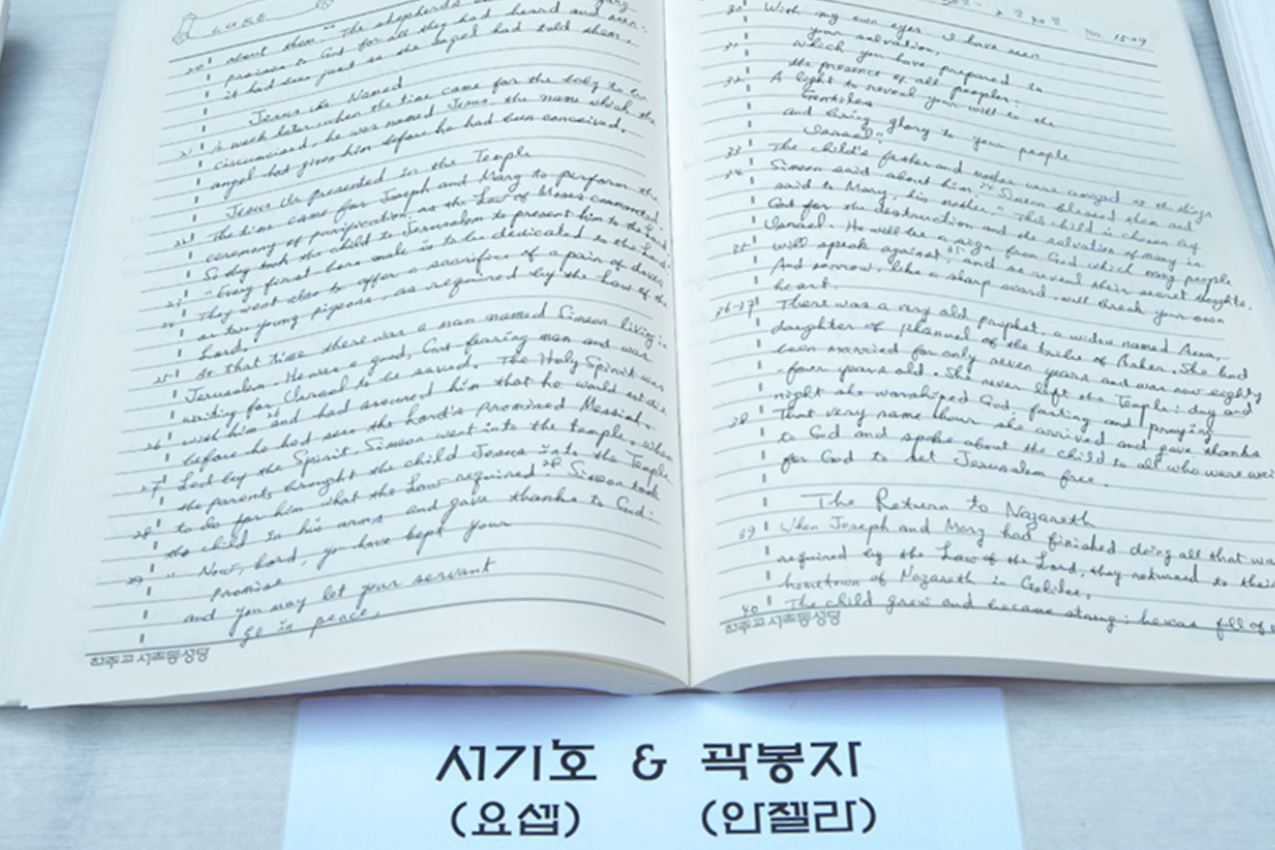 LUKE
about them. The shepherds
20 praises to God for all they had heard and seen.
it had been just as the angel had told them.
Jesus is Named
21 A week later, when the time came for the baby to be
circumcised, he was named Jesus, the name which the
angel had given him before he had been conceived.
Jesus is presented in the Temple
22 The time came for Joseph and Mary to perform the
ceremony of purification, as the Law of Moses commanded
So they took the child to Jerusalem to present him to the Lord
23 "Every first born male is to be dedicated to the Lord."
24 They went also to offer a sacrifice of a pair of doves
or two young pigeons, as required by the Law of the
Lord.
25 At that time there was a man named Simeon living in
Jerusalem. He was a good, God-fearing man and was
waiting for Israel to be saved. The Holy Spirit was
26 with him 26 and had assured him that he would not die
before he had seen the Lord's promised Messiah.
27 Led by the Spirit, Simeon went into the temple. When
the parents brought the child Jesus into the Temple
to do for him what the Law required 28 Simeon took
28 the child in his arms and gave thanks to God:
29 "Now, Lord, you have kept your
promise
and you may let your servant
go in peace.
천주교 서초동성당
No. 15-09
30 With my own eyes I have seen
your salvation,
31 which you have prepared in
the presence of all peoples:
32 A light to reveal your will to the
Gentiles
and bring glory to your people
Israel."
33 The child's father and mother were amazed at the things
34 Simeon said about him. 34 Simeon blessed them and
said to Mary, his mother. "This child is chosen by
God for the destruction and the salvation of many in
Israel. He will be a sign from God which many people
35 will speak against, 35 and so reveal their secret thoughts.
And sorrow, like a sharp sword, will break your own
heart.
36-37 There was a very old prophet, a widow named Anna,
daughter of Phanuel of the tribe of Asher. She had
been married for only seven years and was now eighty
-four years old. She never left the Temple; day and
night she worshiped God, fasting and praying
38 That very same hour she arrived and gave thanks
to God and spoke about the child to all who were wai
for God to set Jerusalem free.
The Return to Nazareth
39 When Joseph and Mary had finished doing all that was
required by the Law of the Lord, they returned to their
hometown of Nazareth in Galilee.
40 The child grew and became strong; he was full of
천주교 서초동성당
서기호 & 곽봉자
(요셉) (안젤라)